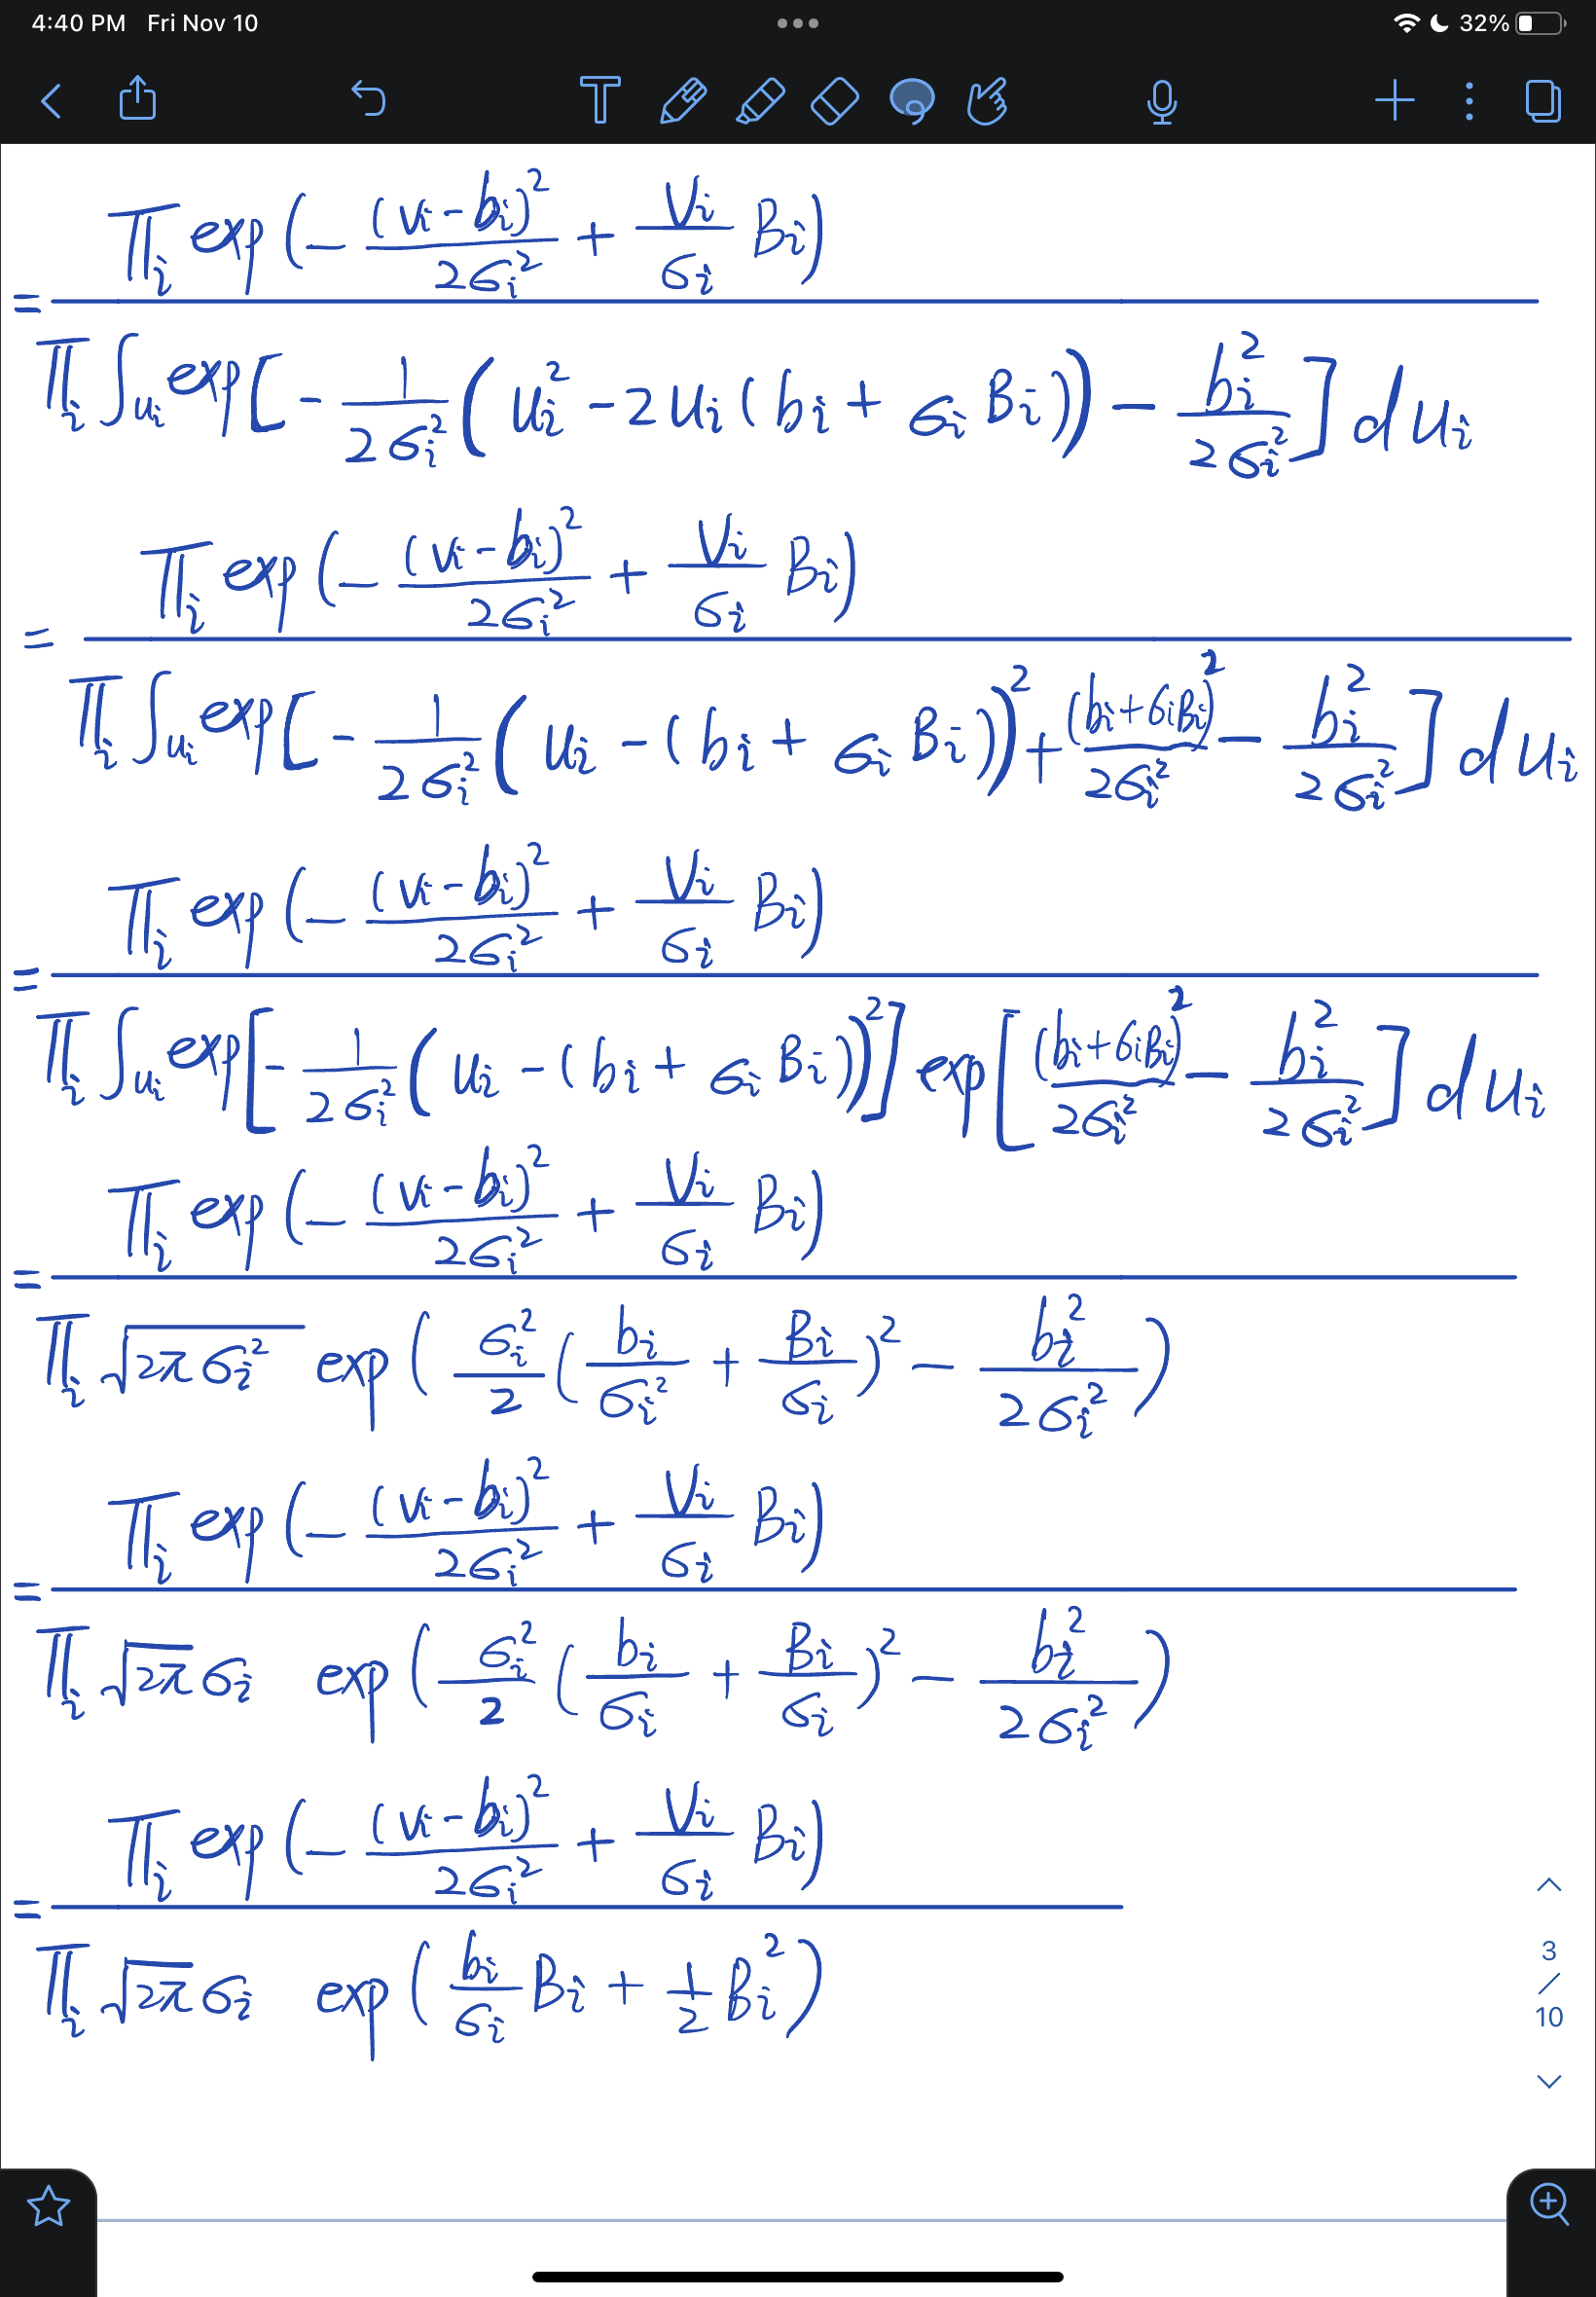 4:40 PM Fri Nov 10 32%
∏_i exp(− (v_i − b_i)² / 2σ_i² + v_i/σ_i B_i)
= ―――
∏_i ∫_{u_i} exp[− 1/2σ_i² (u_i² − 2u_i(b_i + σ_i B_i)) − b_i²/2σ_i²] du_i
∏_i exp(− (v_i − b_i)² / 2σ_i² + v_i/σ_i B_i)
= ―――
∏_i ∫_{u_i} exp[− 1/2σ_i² (u_i − (b_i + σ_i B_i))² + (b_i + σ_i B_i)²/2σ_i² − b_i²/2σ_i²] du_i
∏_i exp(− (v_i − b_i)² / 2σ_i² + v_i/σ_i B_i)
= ―――
∏_i ∫_{u_i} exp[− 1/2σ_i² (u_i − (b_i + σ_i B_i))²] exp[(b_i + σ_i B_i)²/2σ_i² − b_i²/2σ_i²] du_i
∏_i exp(− (v_i − b_i)² / 2σ_i² + v_i/σ_i B_i)
= ―――
∏_i √(2πσ_i²) exp(σ_i²/2 (b_i/σ_i² + B_i/σ_i)² − b_i²/2σ_i²)
∏_i exp(− (v_i − b_i)² / 2σ_i² + v_i/σ_i B_i)
= ―――
∏_i √(2π) σ_i exp(σ_i²/2 (b_i/σ_i + B_i/σ_i)² − b_i²/2σ_i²)
∏_i exp(− (v_i − b_i)² / 2σ_i² + v_i/σ_i B_i)
= ―――
∏_i √(2π) σ_i exp(b_i/σ_i B_i + 1/2 B_i²)
3
/
10